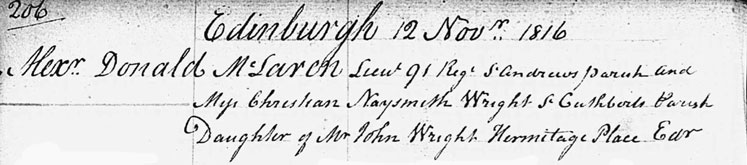 206
Edinburgh 12 Novr. 1816
Alexr. Donald McLaren Lieut 91 Regt St Andrews parish and
Miss Christian Naysmith Wright St Cuthberts Parish
Daughter of Mr John Wright Hermitage Place Edr